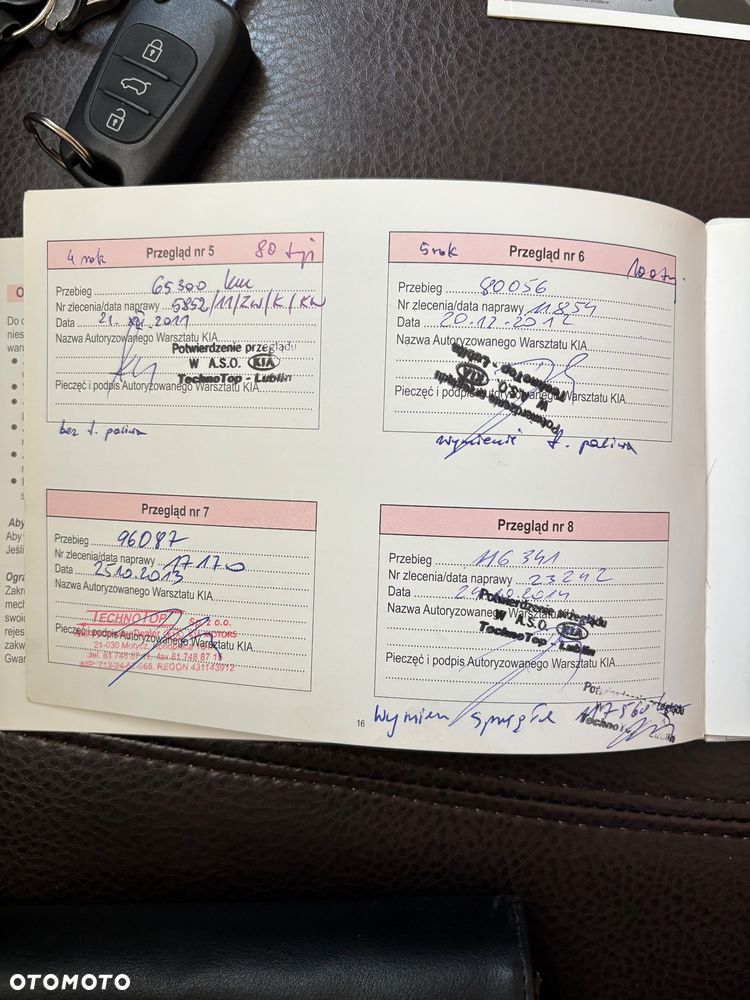 4 rok Przegląd nr 5 80 tyś
Przebieg 65300 km
Nr zlecenia/data naprawy 5852/11/ZW/K/KW
Data 21. XII. 2011
Nazwa Autoryzowanego Warsztatu KIA
Potwierdzenie przeglądu
W A.S.O. KIA
TechnoTop - Lublin
Pieczęć i podpis Autoryzowanego Warsztatu KIA
bez f. paliwa
5 rok Przegląd nr 6 100 ty.
Przebieg 80056
Nr zlecenia/data naprawy 11854
Data 20.12.2012
Nazwa Autoryzowanego Warsztatu KIA
Potwierdzenie przeglądu
W A.S.O. KIA
TechnoTop - Lublin
Pieczęć i podpis Autoryzowanego Warsztatu KIA
wymienić f. paliwa
Przegląd nr 7
Przebieg 96087
Nr zlecenia/data naprawy 17170
Data 25.10.2013
Nazwa Autoryzowanego Warsztatu KIA
TECHNOTOP Sp. z o.o.
MOTORS
Pieczęć i podpis Autoryzowanego Warsztatu KIA
21-030 Motycz, Konopnica
REGON 431143912
Przegląd nr 8
Przebieg 116341
Nr zlecenia/data naprawy 23242
Data 29.10.2014
Nazwa Autoryzowanego Warsztatu KIA
Potwierdzenie przeglądu
W A.S.O. KIA
TechnoTop - Lublin
Pieczęć i podpis Autoryzowanego Warsztatu KIA
Wymien sprzęgła
16
Aby
Jeśli
Ogra
Zakre
mech
swoic
rejes
zakw
Gwar
OTOMOTO